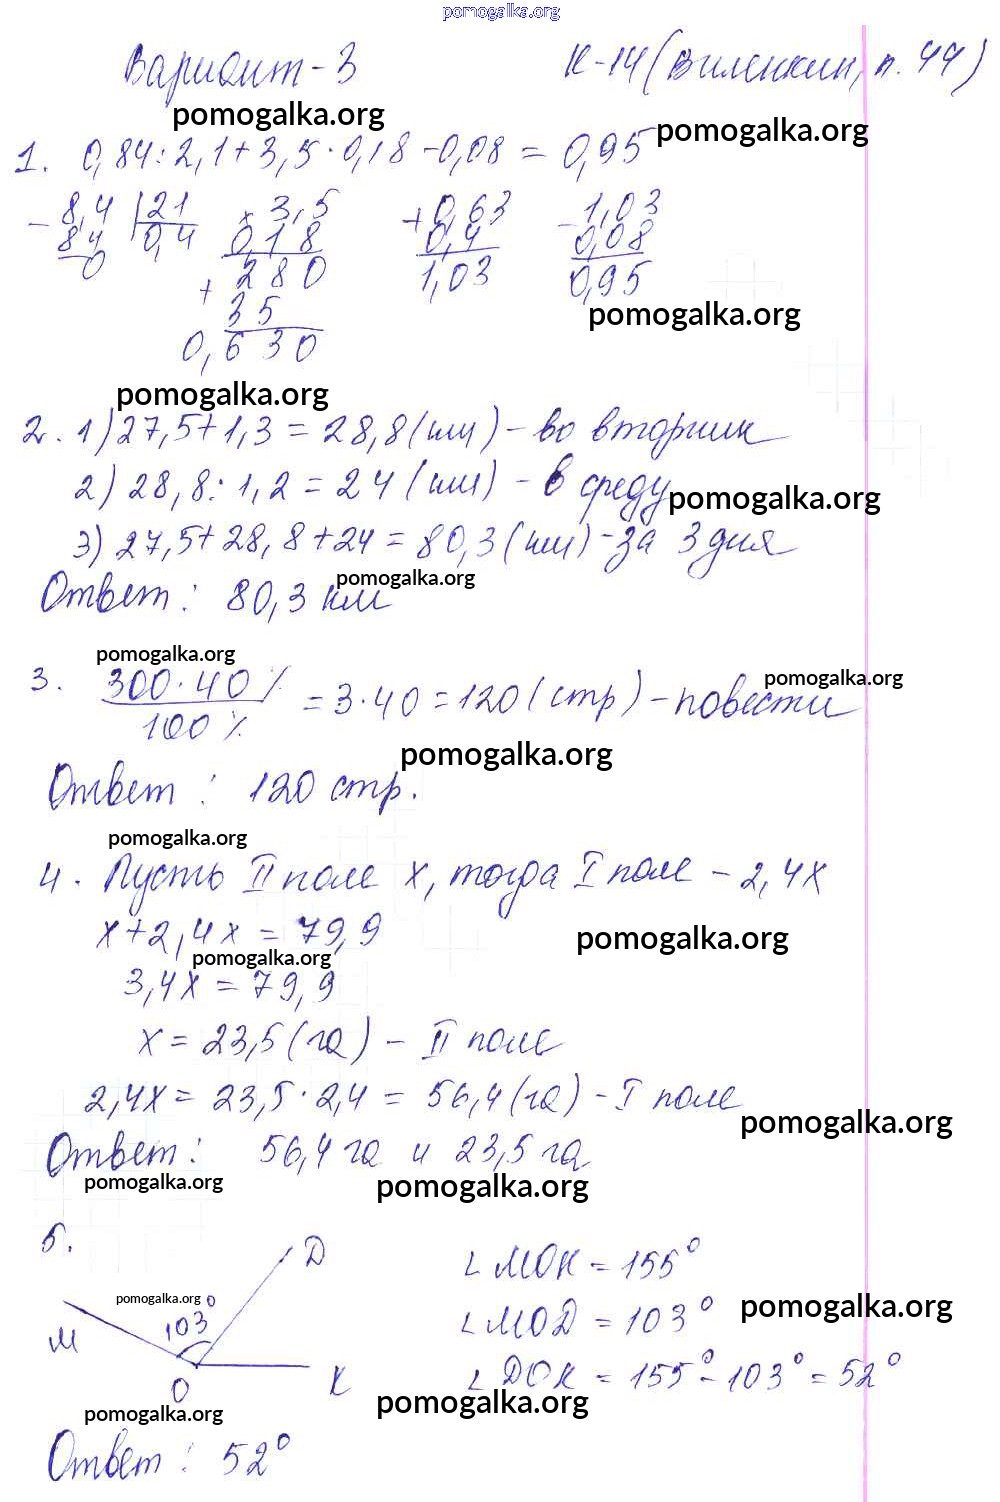 pomogalka.org
Вариант-3 К-14 (Виленкин, п. 44)
pomogalka.org pomogalka.org
1. 0,84:2,1+3,5·0,18-0,08 = 0,95
- 8,4 | 21 × 3,5 + 0,63 - 1,03
84 0,4 0,18 0,4 0,08
0 + 280 1,03 0,95
35 pomogalka.org
0,630
pomogalka.org
2. 1) 27,5+1,3 = 28,8 (км) - во вторник
2) 28,8:1,2 = 24 (км) - в среду pomogalka.org
3) 27,5+28,8+24 = 80,3 (км) - за 3 дня
pomogalka.org
Ответ: 80,3 км
pomogalka.org pomogalka.org
3. 300·40% / 100% = 3·40 = 120 (стр) - повести
pomogalka.org
Ответ: 120 стр.
pomogalka.org
4. Пусть II поле x, тогда I поле - 2,4x
x+2,4x = 79,9 pomogalka.org
pomogalka.org
3,4x = 79,9
x = 23,5 (га) - II поле
2,4x = 23,5·2,4 = 56,4 (га) - I поле
pomogalka.org
Ответ: 56,4 га и 23,5 га
pomogalka.org pomogalka.org
5. D ∠MOK = 155°
pomogalka.org pomogalka.org
M 103° ∠MOD = 103°
O K ∠DOK = 155°-103° = 52°
pomogalka.org pomogalka.org
Ответ: 52°